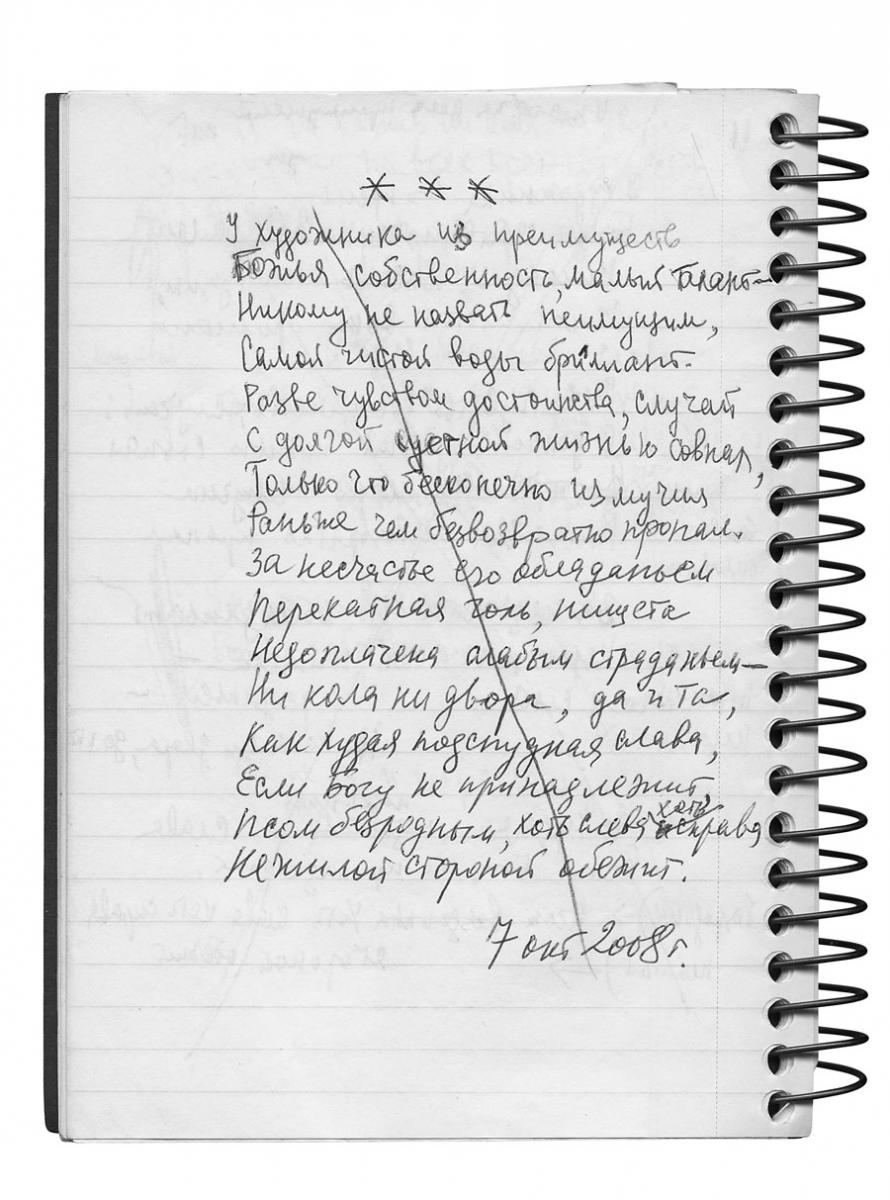 * * *
У художника из преимуществ
Божья собственность, малый талант —
Никому не назвать неимущим,
Самой чистой воды бриллиант.
Разве чувством достоинства, случай
С долгой суетной жизнью совпал,
Только что бесконечно измучил
Раньше чем безвозвратно пропал.
За несчастье его обладаньем
Перекатная голь, нищета
Недоплачена слабым страданьем —
Ни кола ни двора, да и та,
Как худая подспудная слава,
Если Богу не принадлежит,
Псом безродным, хоть слева хоть справа
Нежилой стороной обежит.
7 окт 2008 г.